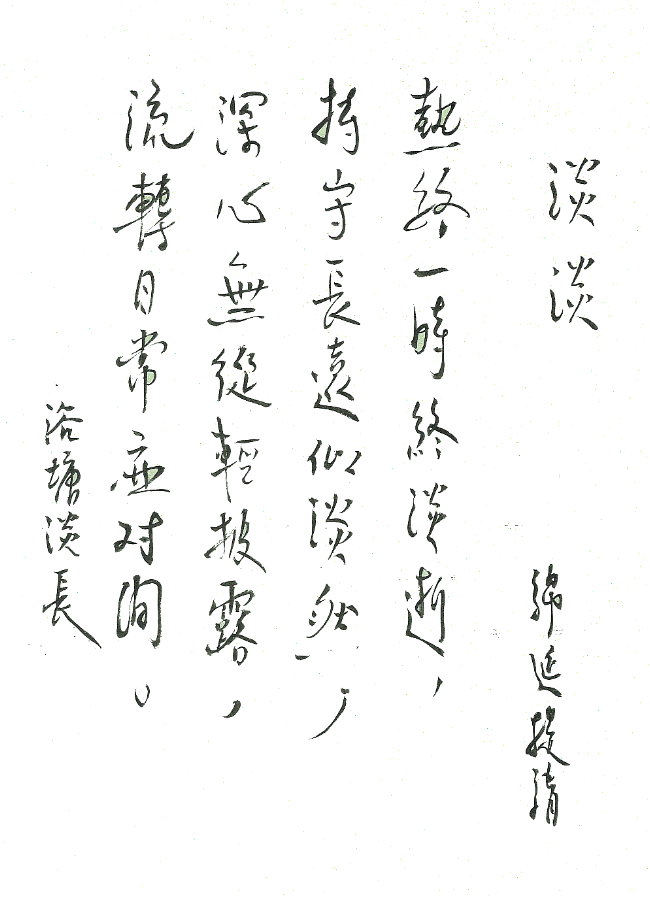 淡淡
綿延提請
熱絡一時終淡逝，
持守長遠似淡然，
深心無從輕披露，
流轉日常应对間。
浴塘淡長